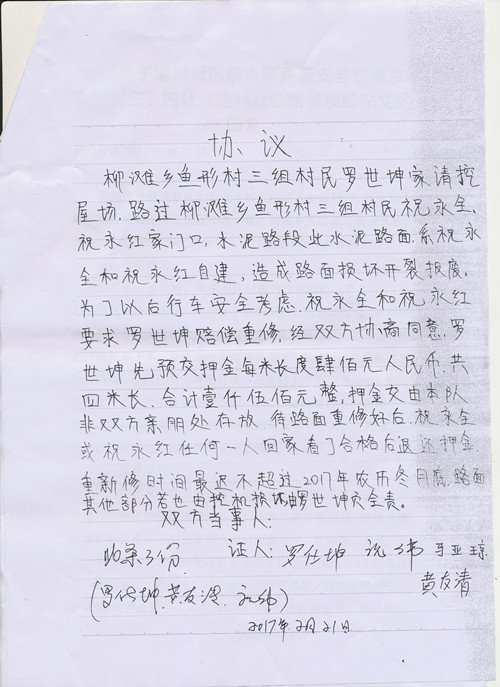 协议
柳滩乡鱼形村三组村民罗世坤家请挖
屋场.路过柳滩乡鱼形村三组村民祝永全,
祝永红家门口,水泥路段此水泥路面.系祝永
全和祝永红自建,造成路面损坏开裂报废。
为了以后行车安全考虑.祝永全和祝永红
要求罗世坤赔偿重修.经双方协商同意.罗
世坤先预交押金每米长度肆佰元人民币.共
四米长.合计壹仟伍佰元整,押金交由本队
非双方亲朋处存放.待路面重修好后.祝永全
或祝永红任何一人回家看了合格后退还押金,
重新修时间最迟不超过2017年农历冬月底.路面
其他部分若也由挖机损坏由罗世坤负全责。
双方当事人:
收条3份. 证人: 罗仕坤 祝纬 马亚琼
黄友清
(罗仕坤.黄友清.祝纬)
2017年2月21日